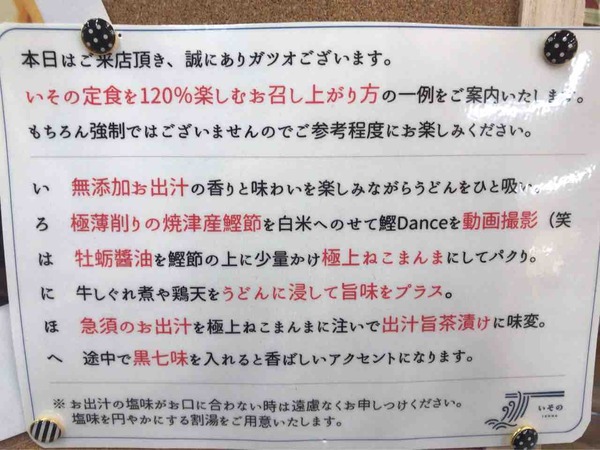 本日はご来店頂き、誠にありガツオございます。
いその定食を120%楽しむお召し上がり方の一例をご案内いたします。
もちろん強制ではございませんのでご参考程度にお楽しみください。
い 無添加お出汁の香りと味わいを楽しみながらうどんをひと吸い。
ろ 極薄削りの焼津産鰹節を白米へのせて鰹Danceを動画撮影（笑
は 牡蛎醬油を鰹節の上に少量かけ極上ねこまんまにしてパクり。
に 牛しぐれ煮や鶏天をうどんに浸して旨味をプラス。
ほ 急須のお出汁を極上ねこまんまに注いで出汁旨茶漬けに味変。
へ 途中で黒七味を入れると香ばしいアクセントになります。
※ お出汁の塩味がお口に合わない時は遠慮なくお申しつけください。
塩味を円やかにする割湯をご用意いたします。
いその